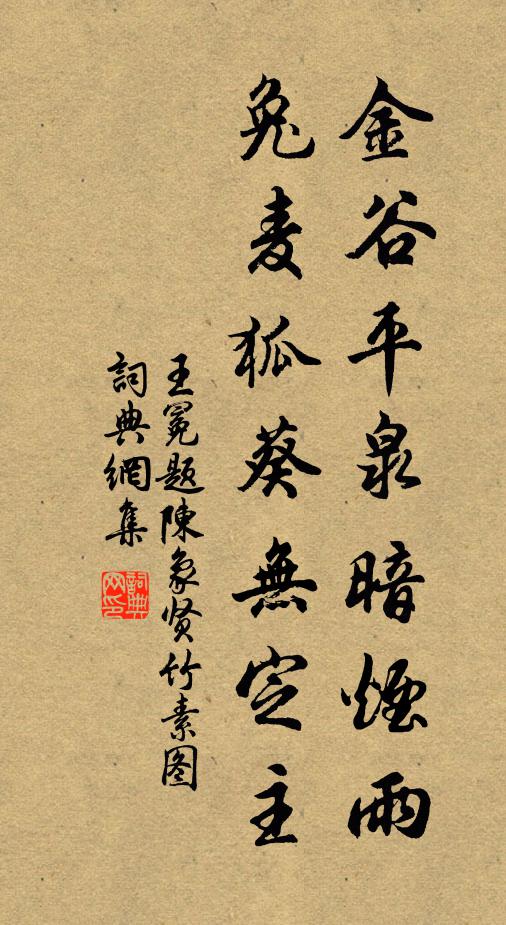 金谷平泉暗煙雨
兔麦狐葵無定主
王冕题陳象贤竹素图
詞典網集
詞典网印